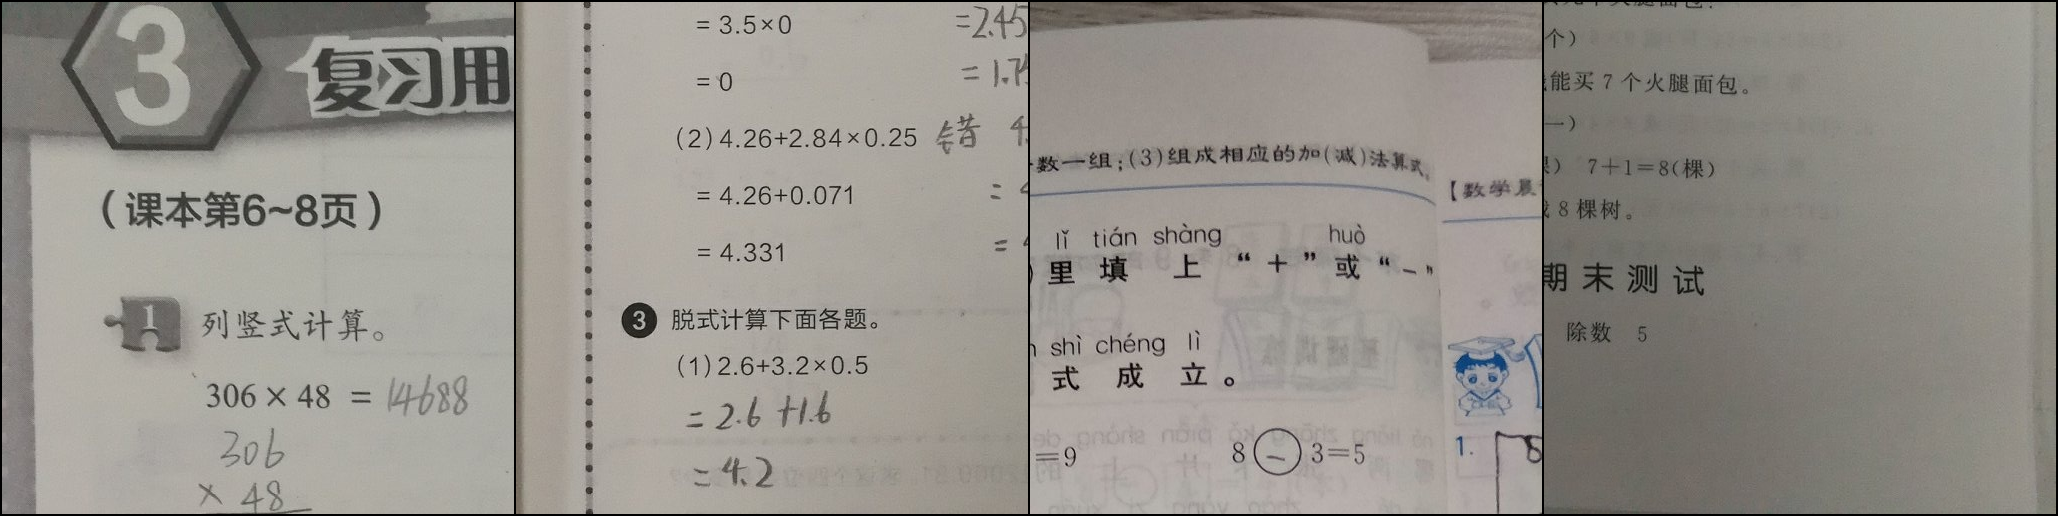 3
复习用
(课本第6~8页)
1
列竖式计算。
306×48 =14688
306
× 48
= 3.5×0
=2.45
= 0
= 1.75
(2)4.26+2.84×0.25 错 4
= 4.26+0.071
= 4.331
3 脱式计算下面各题。
(1)2.6+3.2×0.5
= 2.6 +1.6
= 4.2
数一组;(3)组成相应的加(减)法算式。
lǐ tián shàng huò
里 填 上 “+”或“-”
shì chéng lì
式 成 立。
=9 8-3=5
【数学晨
1. 8
个)
能买 7 个火腿面包。
一)
7+1=8(棵)
8 棵树。
期末测试
除数 5